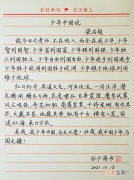 好好学习 天天向上
少年中国说
梁启超
故今日之责任,不在他人,而全在我少年。少年
智则国智,少年富则国富,少年强则国强,少年独
立则国独立,少年自由则国自由,少年进步则国进
步,少年胜于欧洲则国胜于欧洲,少年雄于地球则国
雄于地球。
红日初升,其道大光。河出伏流,一泻汪洋。潜
龙腾渊,鳞爪飞扬。乳虎啸谷,百兽震惶。鹰隼试
翼,风尘吸张。奇花初胎,矞矞皇皇。干将发硎,有作其
芒。天戴其苍,地履其黄。纵有千古,横有八荒。前途
似海,来日方长。
美哉,我少年中国,与天不老!壮哉,我中国少年,
与国无疆!